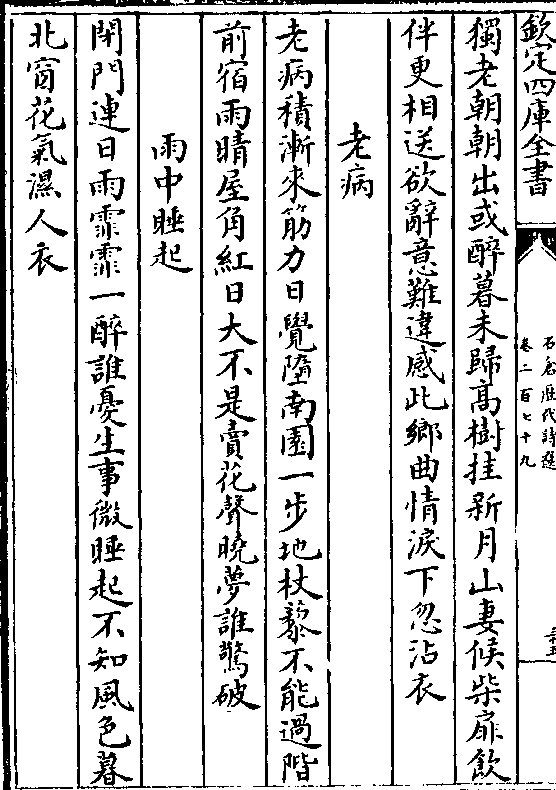 欽定四庫全書
石倉歷代詩選
卷二百七十九
三十五
獨老朝朝出或醉暮未歸高樹挂新月山妻候柴扉飲
伴更相送欲辭意難違感此鄉曲情淚下忽沾衣
老病
老病積漸來筋力日覺墮南園一步地杖藜不能過階
前宿雨晴屋角紅日大不是賣花聲曉夢誰驚破
雨中睡起
閉門連日雨霏霏一醉誰憂生事微睡起不知風色暮
北窗花氣濕人衣